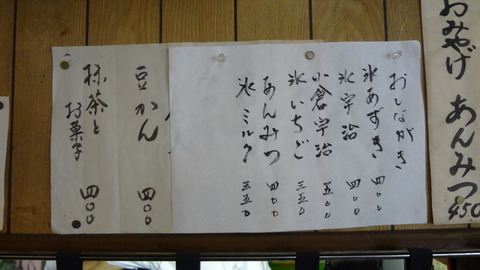 おみやげ あんみつ 450
おしながき
氷あずき 四〇〇
氷宇治 四〇〇
小倉宇治 五〇〇
氷いちご 三五〇
あんみつ 四〇〇
氷ミルク 三五〇
豆かん 四〇〇
抹茶と
お菓子 四〇〇